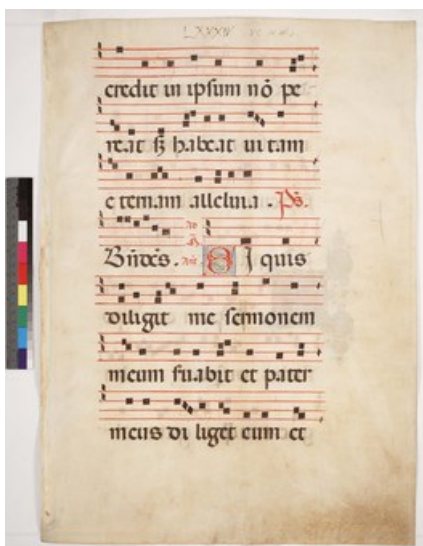 LXXXIV
credit in ipsum nō pe
reat sȝ habeat uitam
eternam alleluia . Ps.
Bn̄dc̄s . Si quis
diligit me sermonem
meum suabit et pater
meus diliget eum et